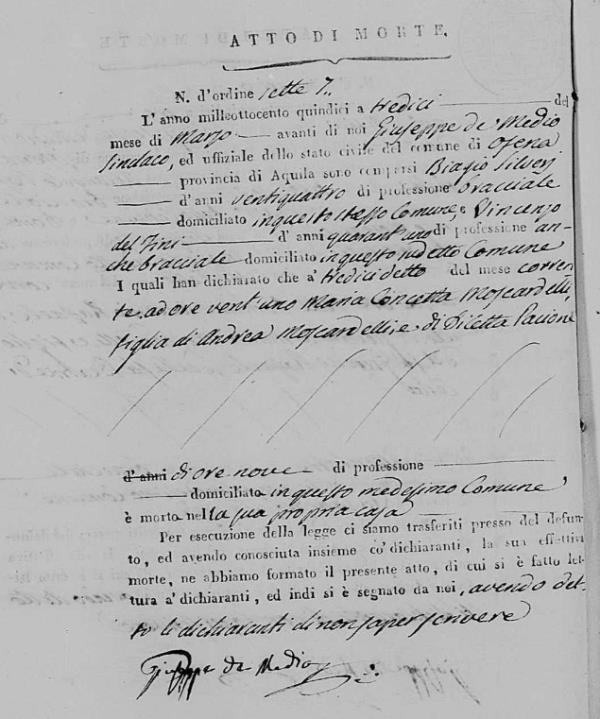 ATTO DI MORTE.
N. d'ordine sette 7..
L'anno milleottocento quindici a tredici del
mese di Marzo avanti di noi Giuseppe de Medio
Sindaco, ed uffiziale dello stato civile del comune di Ofena
provincia di Aquila sono comparsi Biagio Silverj
d'anni ventiquattro di professione bracciale
domiciliato in questo stesso Comune, e Vincenzo
del Fini d'anni quarant'uno di professione an-
che bracciale domiciliato in questo sudetto Comune
I quali han dichiarato che a' tredici detto del mese corren
te, ad ore vent'uno Maria Concetta Moscardelli,
figlia di Andrea Moscardelli, e di Diletta Pacione
d'anni di ore nove di professione
domiciliata in questo medesimo Comune
è morta nella sua propria casa
Per esecuzione della legge ci siamo trasferiti presso del defun-
to, ed avendo conosciuta insieme co' dichiaranti, la sua effettiva
morte, ne abbiamo formato il presente atto, di cui si è fatto let-
tura a' dichiaranti, ed indi si è segnato da noi, avendo det-
to li dichiaranti di non saper scrivere
Giuseppe de Medio